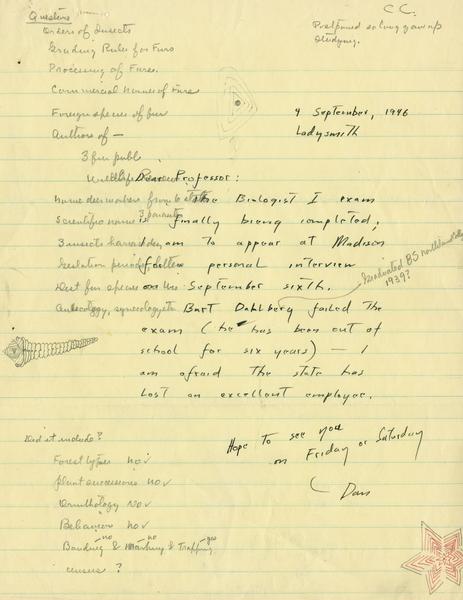 Questions
Orders of Insects
Grading Rules for Furs
Processing of Furs.
Commercial Names of Furs
Foreign species of fur
Authors of —
3 fur publ.
C C:
Postponed solving grownup
studying.
4 September, 1946
Ladysmith
Dear Professor:
The Biologist I exam
is finally being completed;
I am to appear at Madison
for personal interview
on the September sixth.
Burt Dahlberg failed the
exam (he has been out of
school for six years) — I
am afraid the state has
lost an excellent employee.
Hope to see you
on Friday or Saturday
Dan
names deer workers from 6 states
Scientific names 3 parasites
3 insects harmful
Gestation period
Best fur species
Autecology, synecology
Graduated BS
1939?
Did it include?
Forest types no ✓
plant successions no ✓
Ornithology no ✓
Behavior no ✓
Banding no & Marking no & Trapping yes
census ?